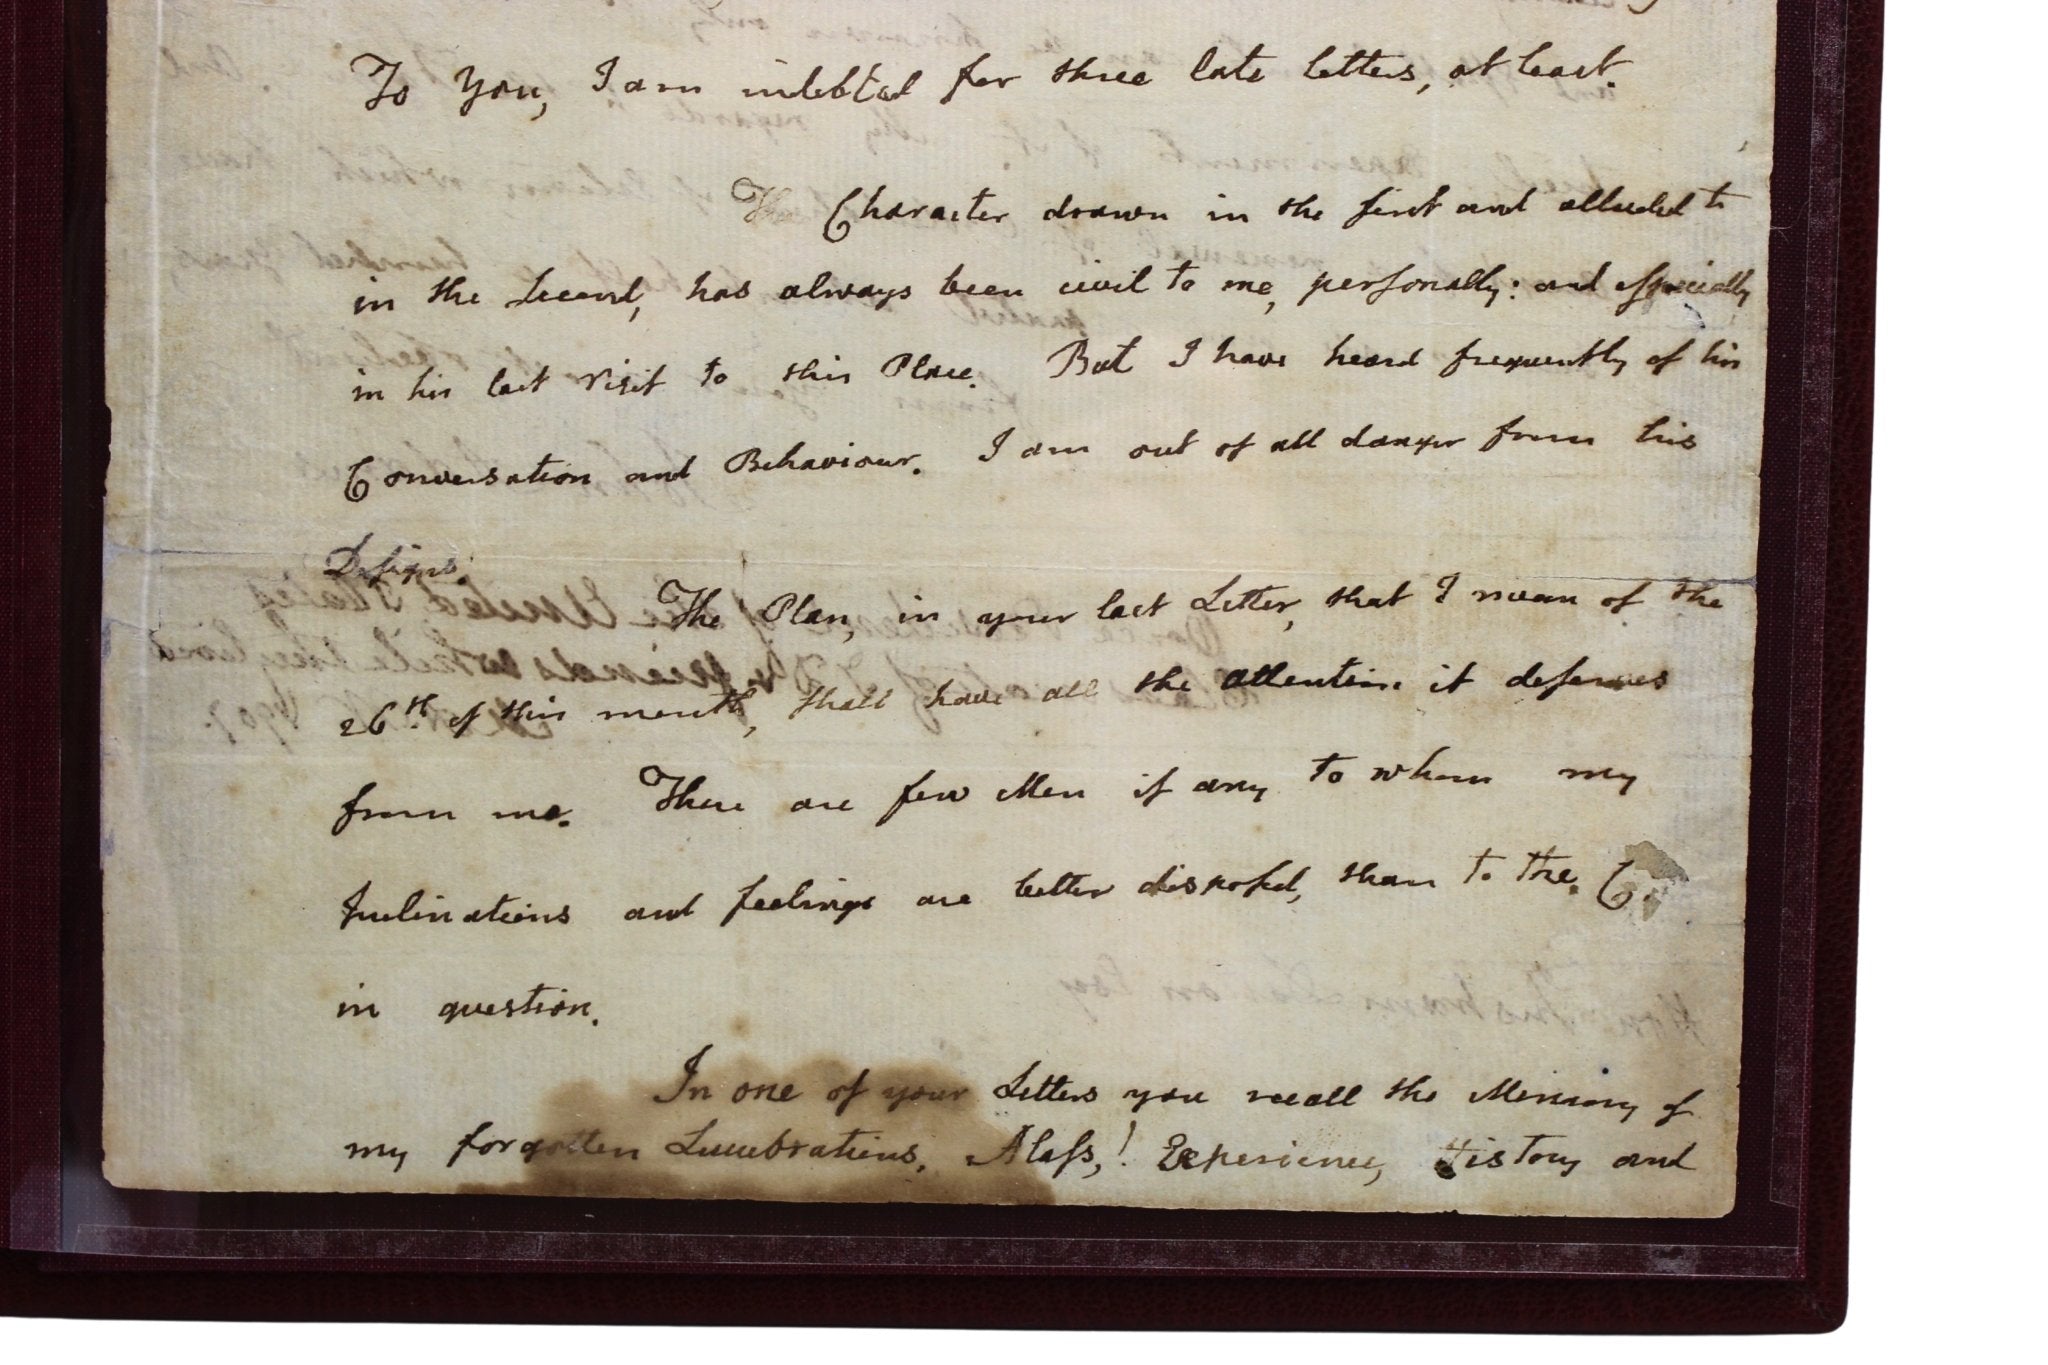 To You, I am indebted for three late letters, at least.
The Character drawn in the first and alluded to
in the Second, has always been civil to me, personally: and especially
in his last visit to this Place. But I have heard frequently of his
Conversation and Behaviour. I am out of all danger from his
Designs.
The Plan, in your last Letter, that I mean of the
26th of this month, shall have all the attention it deserves
from me. There are few Men if any to whom my
Inclinations and feelings are better disposed, than to the C.
in question.
In one of your Letters you recall the Memory of
my forgotten Lucubrations. Alass,! Experience, History and